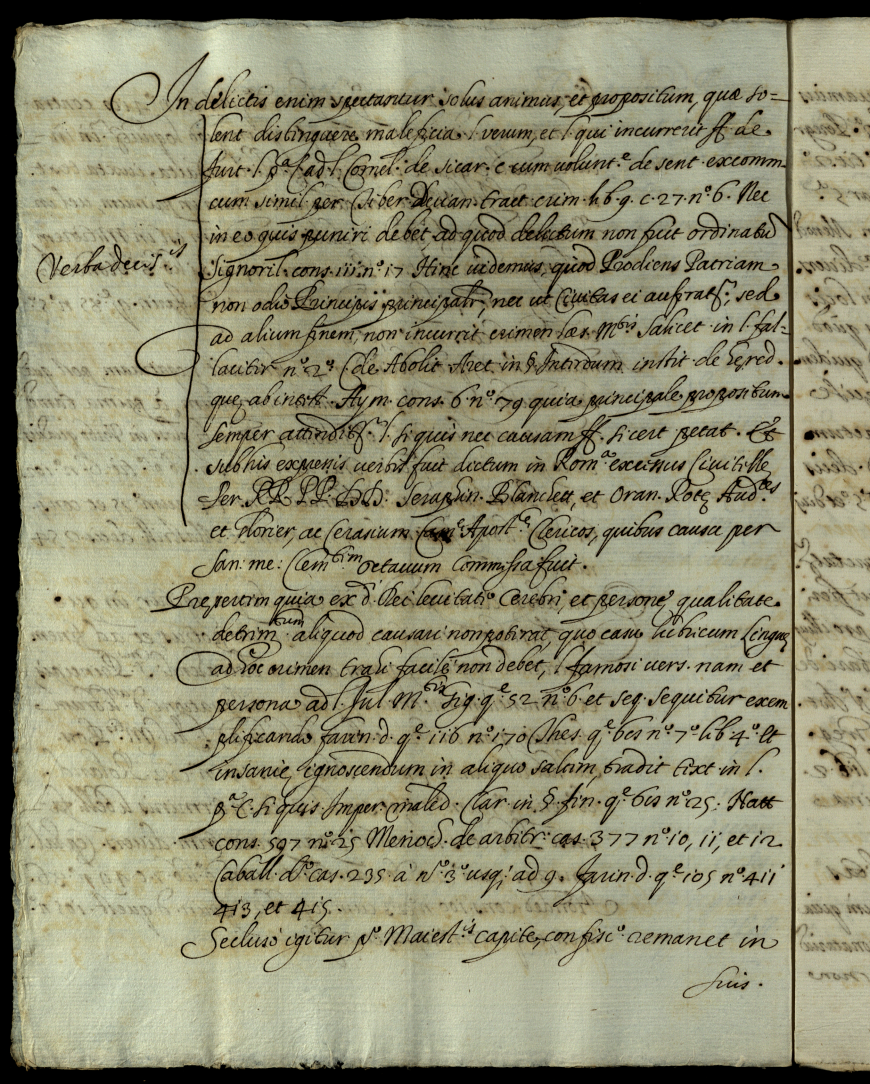 In delictis enim spectantur solus animus, et propositum, quæ so-
lent distinguere maleficia l. verum, et l. qui incurrerit ff. de
furt. l. pª C. ad l. Cornel. de sicar. c. cum volunt.e de sent. excomm.
cum simil. per Tiber. Decian. tract. crim. lib. 9. c. 27. nº 6. Nec
in eo quis puniri debet, ad quod delictum non fuit ordinatũ
Verba decis.is
Signoril. cons. 111. nº 17 Hinc videmus, quod Prodiens Patriam
non odio Principis principalr, nec ut Civitas ei auferatr. sed
ad alium finem, non incurrit crimen læs. Mtis Salicet. in l. fal-
laciter nº 2º C. de Abolit. Aret. in § Interdum instit. de hęred.
quę ab intest. Aym. cons. 6 nº 79 quia principale propositum
semper attenditr l. si quis nec causam ff. si cert. petat. Et
sub his expressis verbis fuit dictum in Romª excessus Civit.lle
Per RR. PP. DD. Seraphin. Blanchett, et Oran. Rotę Aud.res
et Florier, ac Cerasium Camę Apost.cę Clericos, quibus causa per
San: me: Clem.tem octavum Commissa fuit.
Prępertim quia ex d. Rei levitate Cerebri, et personę qualitate
detrim.tum aliquod causari non poterat, quo casu lubricum Linguę
ad hoc crimen trahi facilè non debet, l. famosi vers. nam et
persona ad l. Jul. M.tis Gig. q.e 52 nº 6 et seq. sequitur exem
plificando farin. d. q.e 116 nº 170 Thes. q.e 61 nº 7º lib. 4º Et
insanię ignoscendum in aliquo saltim, tradit text. in l.
pª C. si quis Imper. maled. Clar. in § fin. q.e 61 nº 25. Natt.
cons. 597 nº 25 Menoch. de arbitr. cas. 377 nº 10, 11, et 12
Caball. dº cas. 235 à nº 3º usq; ad 9. farin. d. q.e 105 nº 411
413, et 415.
Secluso igitur pº Maiest.is capite, confisc.º remanet in
suis.